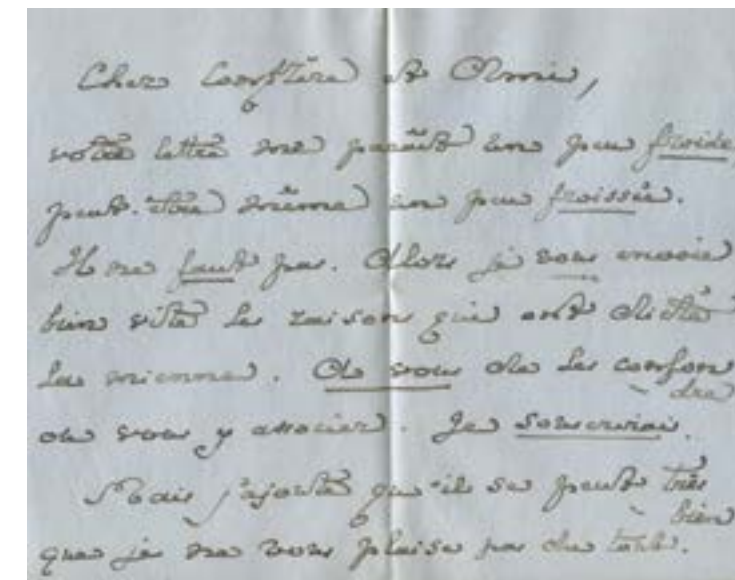 Cher Confrère et Ami,
votre lettre me paraît un peu froide,
peut-être même un peu froissée.
Il ne faut pas. Alors je vous envoie
bien vite les raisons qui ont dicté
la mienne. À vous de les confon
dre
ou vous y associer. Je souscrirai.
Mais j'ajoute qu'il se peut très
bien
que je ne vous plaise pas du tout.